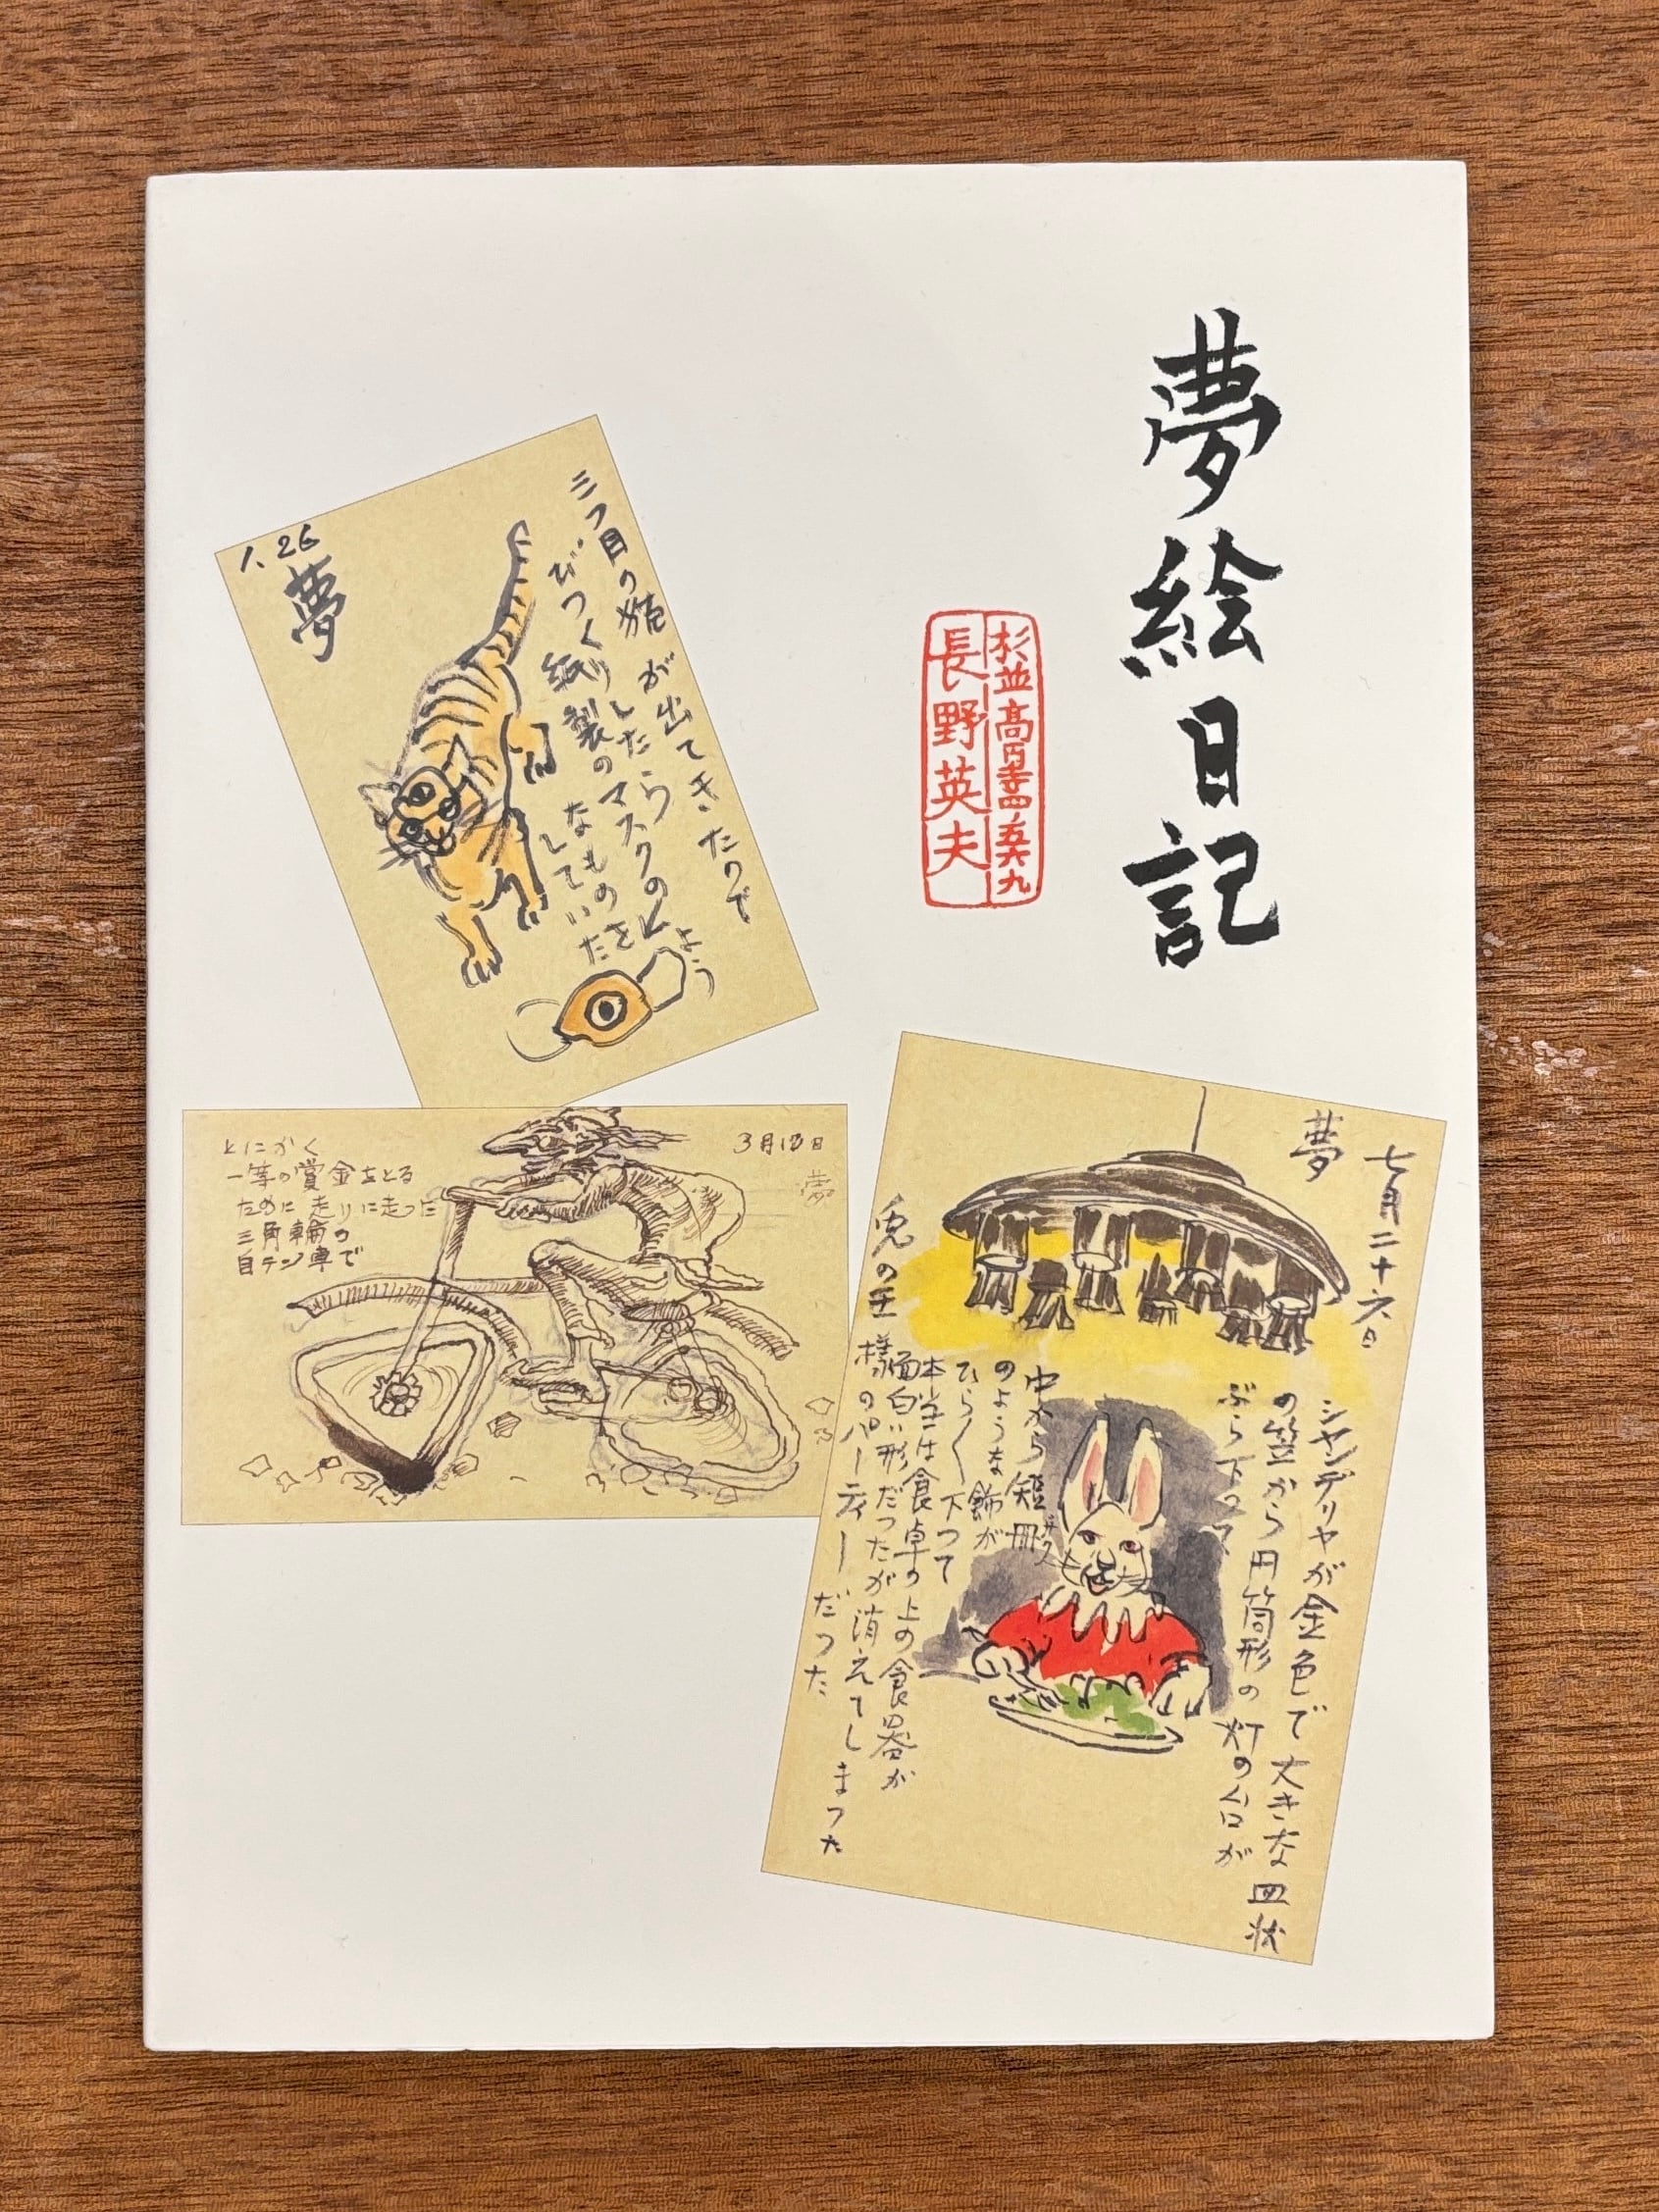 夢絵日記
杉並高円寺四ノ五六九
長野英夫
1.26
夢
三つ目の猫が出てきたので
びつくりしたら
紙製のマスクのよう
なものを
していた
3月13日
夢
とにかく
一等の賞金をとる
ために走りに走った
三角輪の
自テン車で
七月二十六日
夢
シヤンデリヤが金色で大きな皿状
の笠から円筒形の灯の台が
ぶら下つて
中から短冊
のような飾が
ひらく下つて
本当は食卓の上の食器が
面白い形だつたが消えてしまつた
兎の王様のパーティーだつた